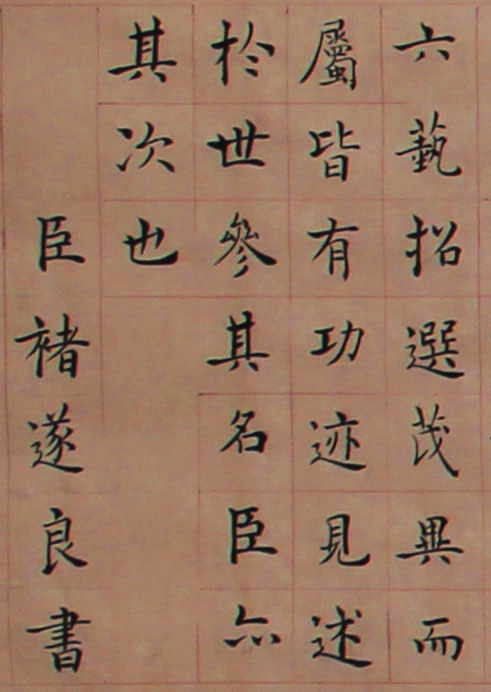 六藝招選茂異而
屬皆有功迹見述
於世參其名臣亦
其次也
臣褚遂良書